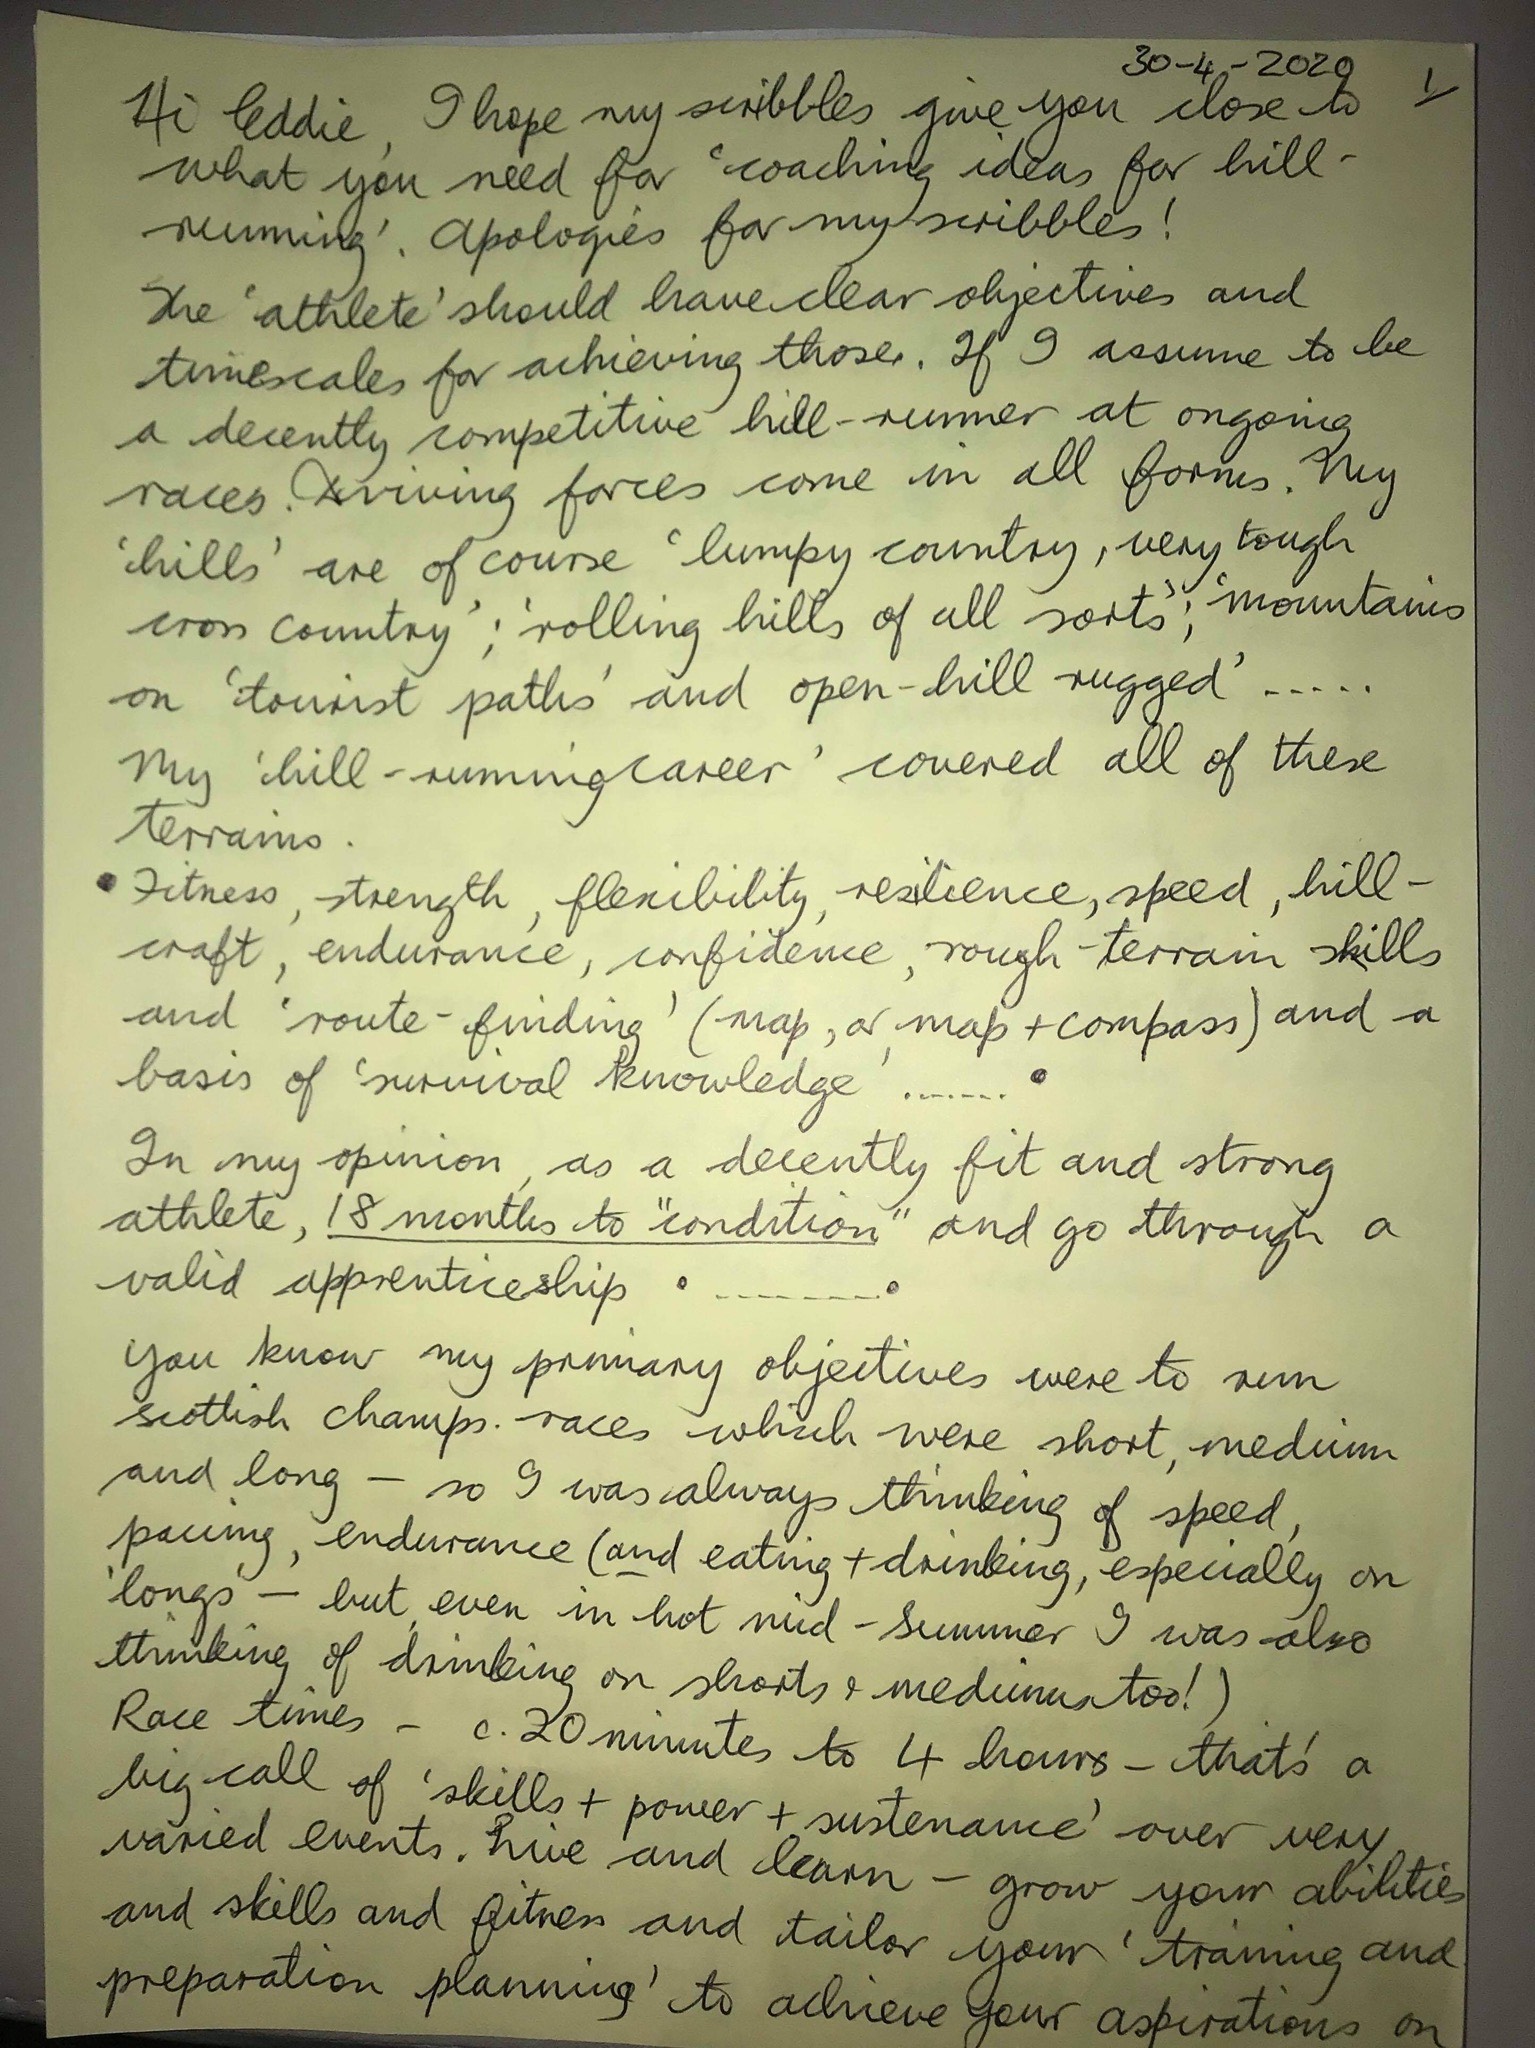 30-4-2020 1/
Hi Eddie, I hope my scribbles give you close to
what you need for 'coaching ideas for hill-
running'. Apologies for my scribbles!
The 'athlete' should have clear objectives and
timescales for achieving those. If I assume to be
a decently competitive hill-runner at ongoing
races. Driving forces come in all forms. My
'hills' are of course 'lumpy country, very tough
cross country'; 'rolling hills of all sorts'; 'mountains
on 'tourist paths' and open-hill rugged' .....
My 'hill-running career' covered all of these
terrains.
• Fitness, strength, flexibility, resilience, speed, hill-
craft, endurance, confidence, rough-terrain skills
and 'route-finding' (map, or map + compass) and a
basis of 'survival knowledge' ....... •
In my opinion, as a decently fit and strong
athlete, 18 months to "condition" and go through a
valid apprenticeship • ........ •
You know my primary objectives were to run
Scottish Champs. races which were short, medium
and long - so I was always thinking of speed,
pacing, endurance (and eating + drinking, especially on
'longs' - but even in hot mid-Summer I was also
thinking of drinking on shorts & mediums too!)
Race times - c. 20 minutes to 4 hours - that's a
big call of 'skills + power + sustenance' over very
varied events. Live and learn - grow your abilities
and skills and fitness and tailor your 'training and
preparation planning' to achieve your aspirations on